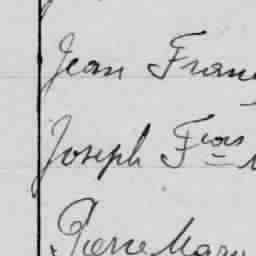 Jean Fran
Joseph Fcois
Pierre Mary